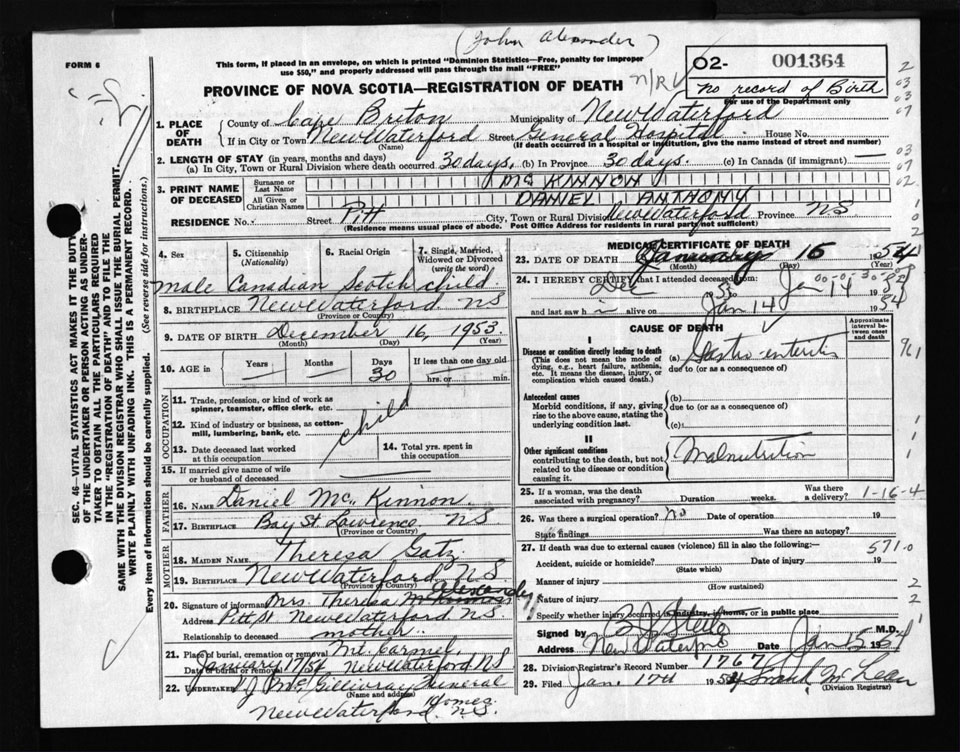 (John Alexander)
FORM 6
This form, if placed in an envelope, on which is printed "Dominion Statistics—Free, penalty for improper
use $50," and properly addressed will pass through the mail "FREE"
N/RV
02- 001364
No record of Birth
For use of the Department only
PROVINCE OF NOVA SCOTIA—REGISTRATION OF DEATH
1. PLACE OF DEATH
County of Cape Breton Municipality of New Waterford
If in City or Town New Waterford Street General Hospital House No.
(Name) (If death occurred in a hospital or institution, give the name instead of street and number)
2. LENGTH OF STAY (in years, months and days)
(a) In City, Town or Rural Division where death occurred 30 days. (b) In Province 30 days. (c) In Canada (if immigrant) —
3. PRINT NAME OF DECEASED
Surname or Last Name Mc KINNON
All Given or Christian Names DANIEL ANTHONY
RESIDENCE No. Street Pitt City, Town or Rural Division New Waterford Province NS
(Residence means usual place of abode. Post Office Address for residents in rural party not sufficient)
4. Sex
5. Citizenship (Nationality)
6. Racial Origin
7. Single, Married, Widowed or Divorced (write the word)
male Canadian Scotch child
8. BIRTHPLACE New Waterford NS
(Province or Country)
9. DATE OF BIRTH December 16, 1953
(Month) (Day) (Year)
10. AGE in Years — Months — Days 30 If less than one day old
hrs. or min.
OCCUPATION
11. Trade, profession, or kind of work as
spinner, teamster, office clerk, etc.
12. Kind of industry or business, as cotton-
mill, lumbering, bank, etc.
child
13. Date deceased last worked at this occupation
14. Total yrs. spent in this occupation
15. If married give name of wife or husband of deceased
FATHER
16. NAME Daniel McKinnon
17. BIRTHPLACE Bay St. Lawrence NS
(Province or Country)
MOTHER
18. MAIDEN NAME Theresa Gatz
19. BIRTHPLACE New Waterford NS.
(Province or Country)
Alexander
20. Signature of informant Mrs. Theresa McKinnon
Address Pitt St New Waterford NS
Relationship to deceased mother
21. Place of burial, cremation or removal Mt. Carmel,
Date of burial or removal January 17/54 New Waterford NS
22. UNDERTAKER McGillivray Funeral Homes
(Name and address)
New Waterford. N.S.
MEDICAL CERTIFICATE OF DEATH
23. DATE OF DEATH January 15 1954
(Month) (Day) (Year)
24. I HEREBY CERTIFY that I attended deceased from:
Dec 1953 to Jan 14 1954
and last saw h alive on Jan 14 1954
CAUSE OF DEATH
Approximate interval between onset and death
I
Disease or condition directly leading to death
(This does not mean the mode of
dying, e.g., heart failure, asthenia,
etc. It means the disease, injury, or
complication which caused death.)
(a) Gastro-enteritis
due to (or as a consequence of)
Antecedent causes
Morbid conditions, if any, giving
rise to the above cause, stating the
underlying condition last.
(b)
due to (or as a consequence of)
(c)
II
Other significant conditions
contributing to the death, but not
related to the disease or condition
causing it.
Malnutrition
25. If a woman, was the death associated with pregnancy? Duration weeks. Was there a delivery?
1-16-4
26. Was there a surgical operation? no Date of operation 19
State findings Was there an autopsy?
27. If death was due to external causes (violence) fill in also the following:—
571.0
Accident, suicide or homicide? Date of injury 19
(State which)
Manner of injury
(How sustained)
Nature of injury
Specify whether injury occurred in industry, home, or in public place
Signed by M.D.
Address New Waterford Date Jan 15 1954
28. Division Registrar's Record Number 1767
29. Filed Jan. 17th 1954 Frank McLean
(Division Registrar)
SEC. 46—VITAL STATISTICS ACT MAKES IT THE DUTY
OF THE UNDERTAKER OR PERSON ACTING AS UNDER-
TAKER TO OBTAIN ALL THE PARTICULARS REQUIRED
IN THE "REGISTRATION OF DEATH" AND TO FILE THE
SAME WITH THE DIVISION REGISTRAR WHO SHALL ISSUE THE BURIAL PERMIT.
WRITE PLAINLY WITH UNFADING INK. THIS IS A PERMANENT RECORD.
Every item of information should be carefully supplied. (See reverse side for instructions.)